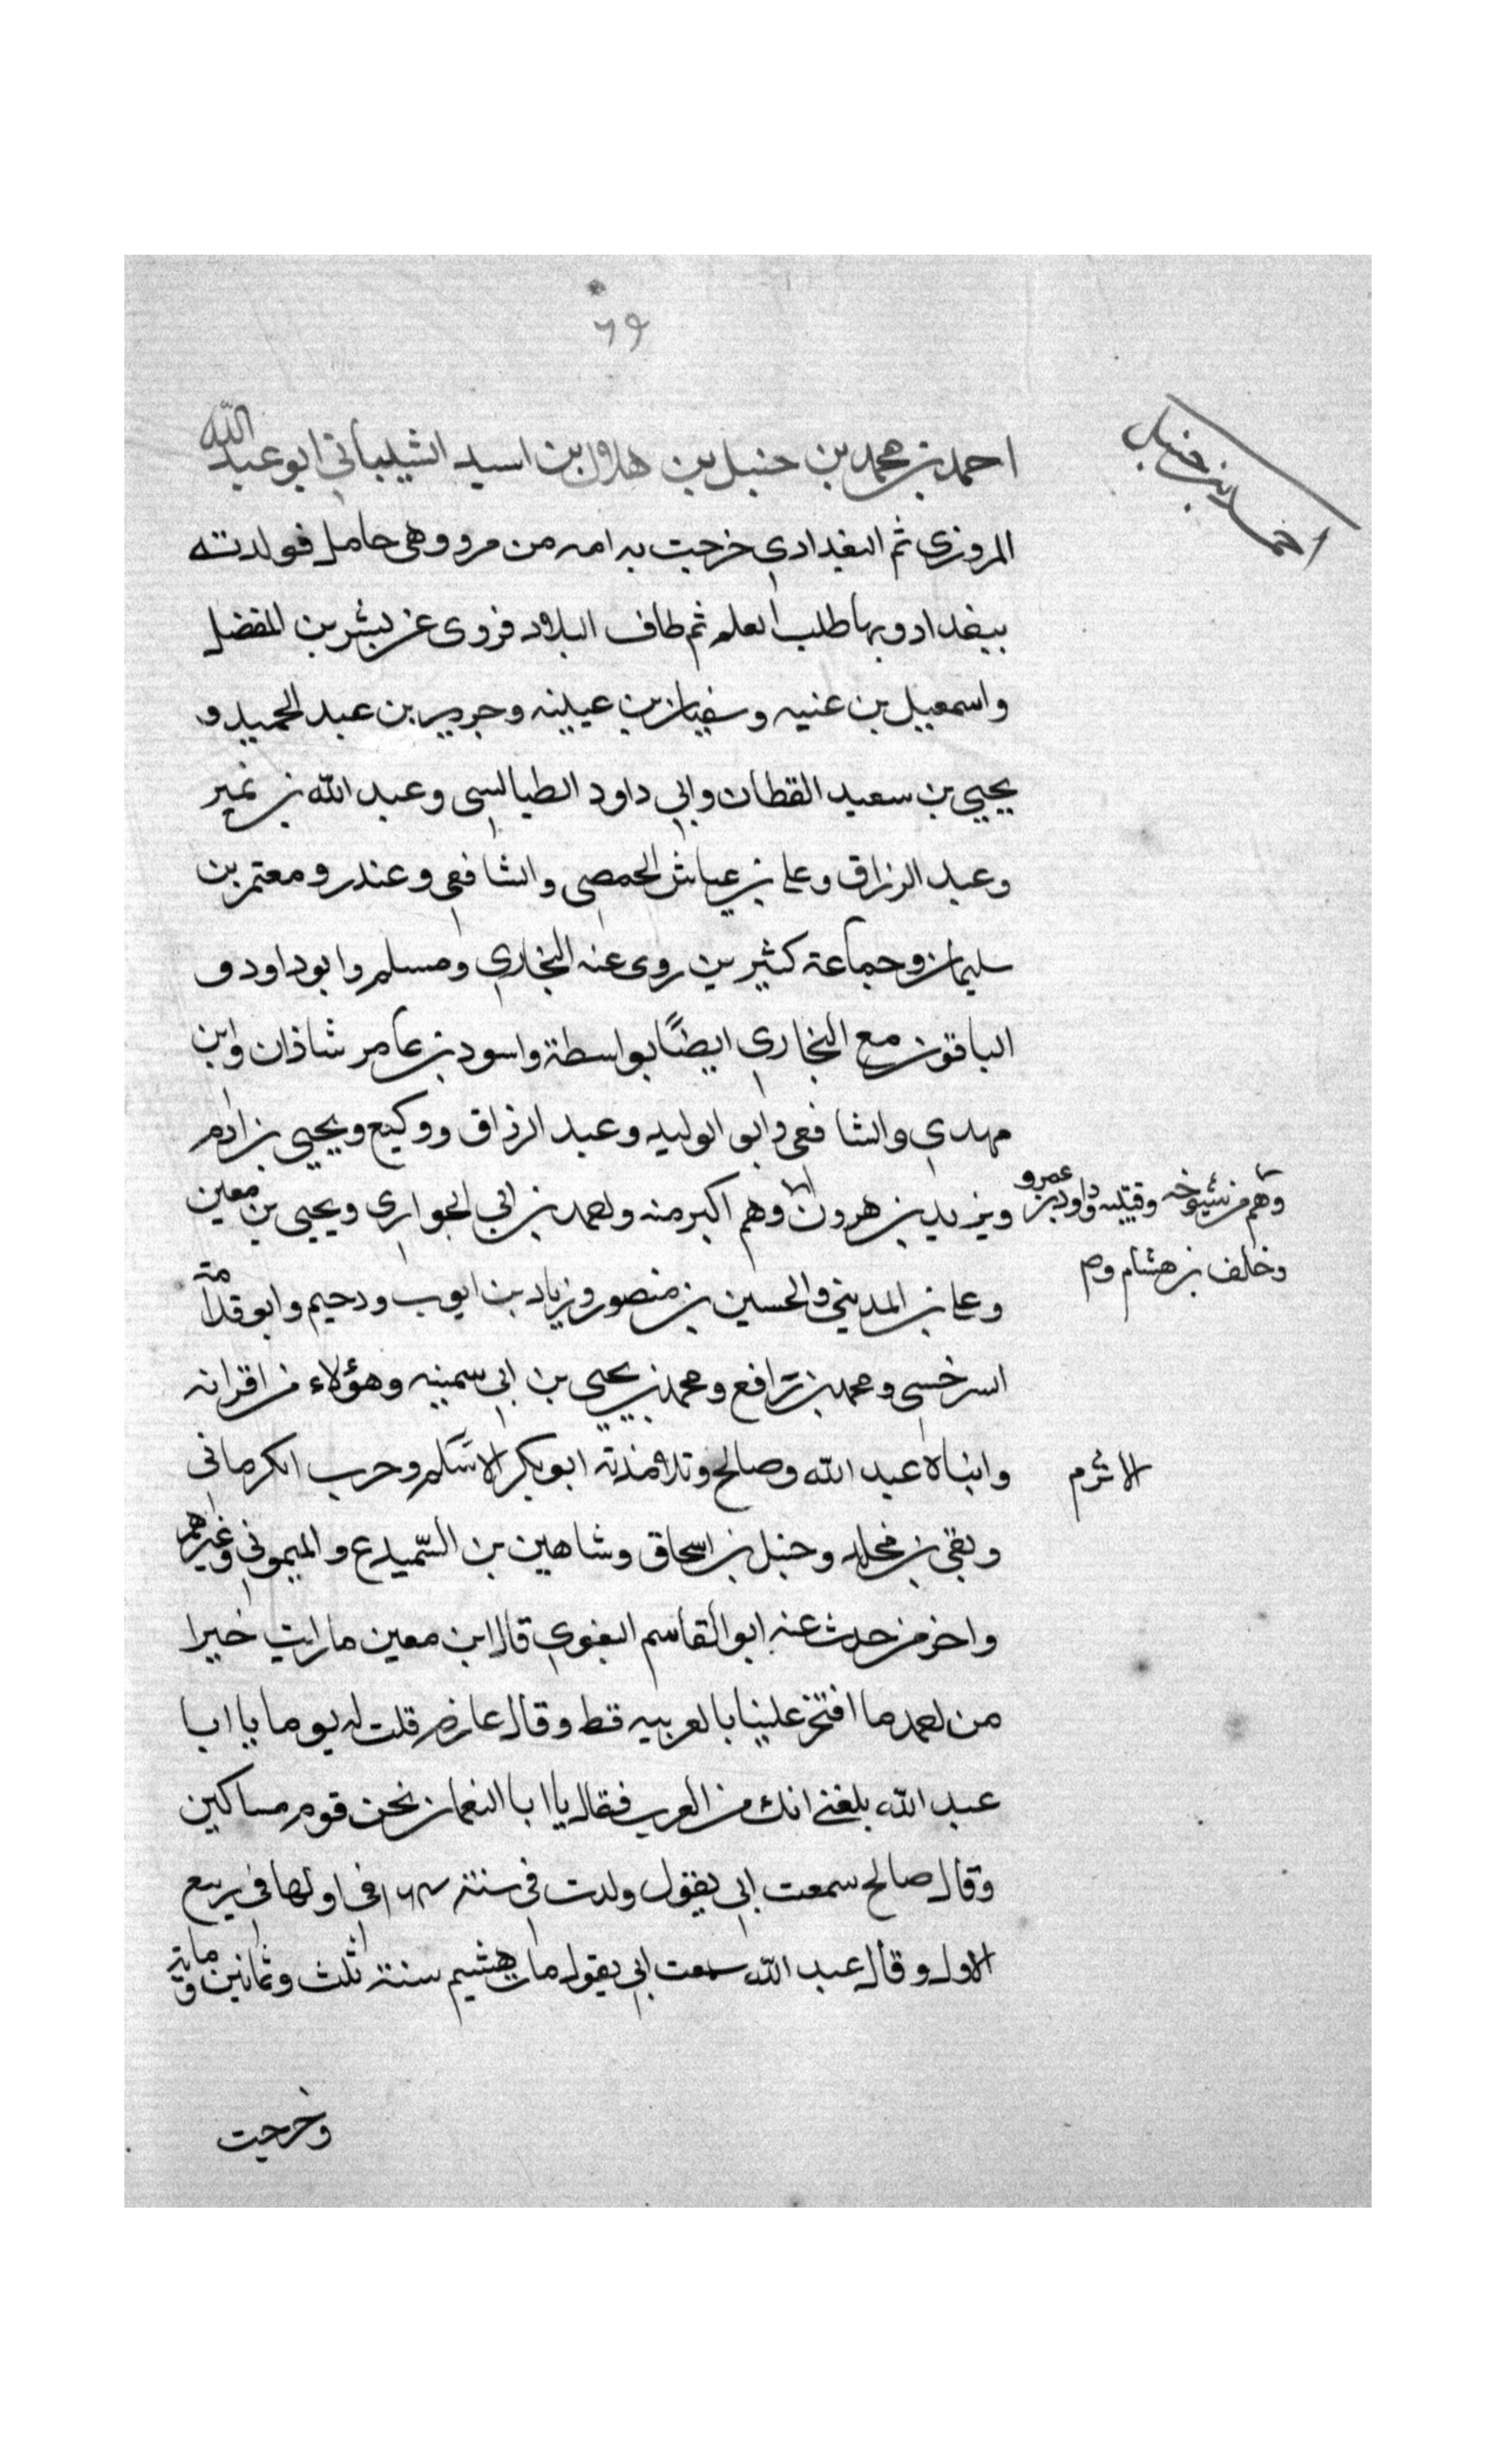 ٦٩
احمد بن حنبل
احمد بن محمد بن حنبل بن هلال بن اسيد الشيباني ابو عبد الله
المروزي ثم البغدادي خرجت به امه من مرو وهي حامل فولدته
ببغداد وبها طلب العلم ثم طاف البلاد فروى عن بشر بن المفضل
واسمعيل بن عنيه وسفيان بن عيينه وجرير بن عبد الحميد و
يحيى بن سعيد القطان وابي داود الطيالسي وعبد الله بن نمير
وعبد الرزاق وعلي بن عياش الحمصي والشافعي وعندر ومعتمر بن
سليمان وجماعة كثيرين روى عنه البخاري ومسلم وابو داود و
الباقون مع البخاري ايضًا بواسطة واسود بن عامر شاذان وابن
مهدي والشافعي وابو الوليد وعبد الرزاق ووكيع ويحيى بن ادم
ويزيد بن هرون وهم اكبر منه واحمد بن ابي الحواري ويحيى بن معين
وهم من شيوخه وقتيبه وداود بن عمرو
وخلف بن هشام وهم
وعلي بن المديني والحسين بن منصور وزياد بن ايوب ودحيم وابو قدامة
اسرخسي ومحمد بن رافع ومحمد بن يحيى بن ابي سمينه وهؤلاء من اقرانه
وابناه عبد الله وصالح وتلامذته ابو بكر الاسلم وحرب الكرماني
الاثرم
وبقي بن مخلد وحنبل بن اسحاق وشاهين بن السّميدع والميموني وغيرهم
واخر من حدث عنه ابو القاسم البغوي قال ابن معين ما رايت خيرا
من احمد ما افتخر علينا بالعربيه قط وقال عارم قلت له يوما يا ابا
عبد الله بلغني انك من العرب فقال يا ابا النعمان نحن قوم مساكين
وقال صالح سمعت ابي يقول ولدت في سنة ١٦٤ في اولها في ربيع
الاول وقال عبد الله سمعت ابي يقول مات هشيم سنة ثلث وثمانين وماية
وخرجت